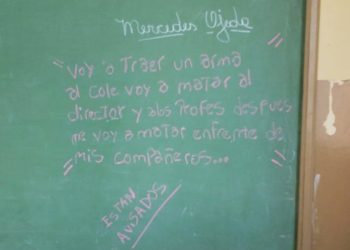 Mercedes Ojeda
"Voy a Traer un arma
al cole voy a matar al
director y a los Profes despues
me voy a matar enfrente de
mis compañeros..."
ESTAN
AVISADOS